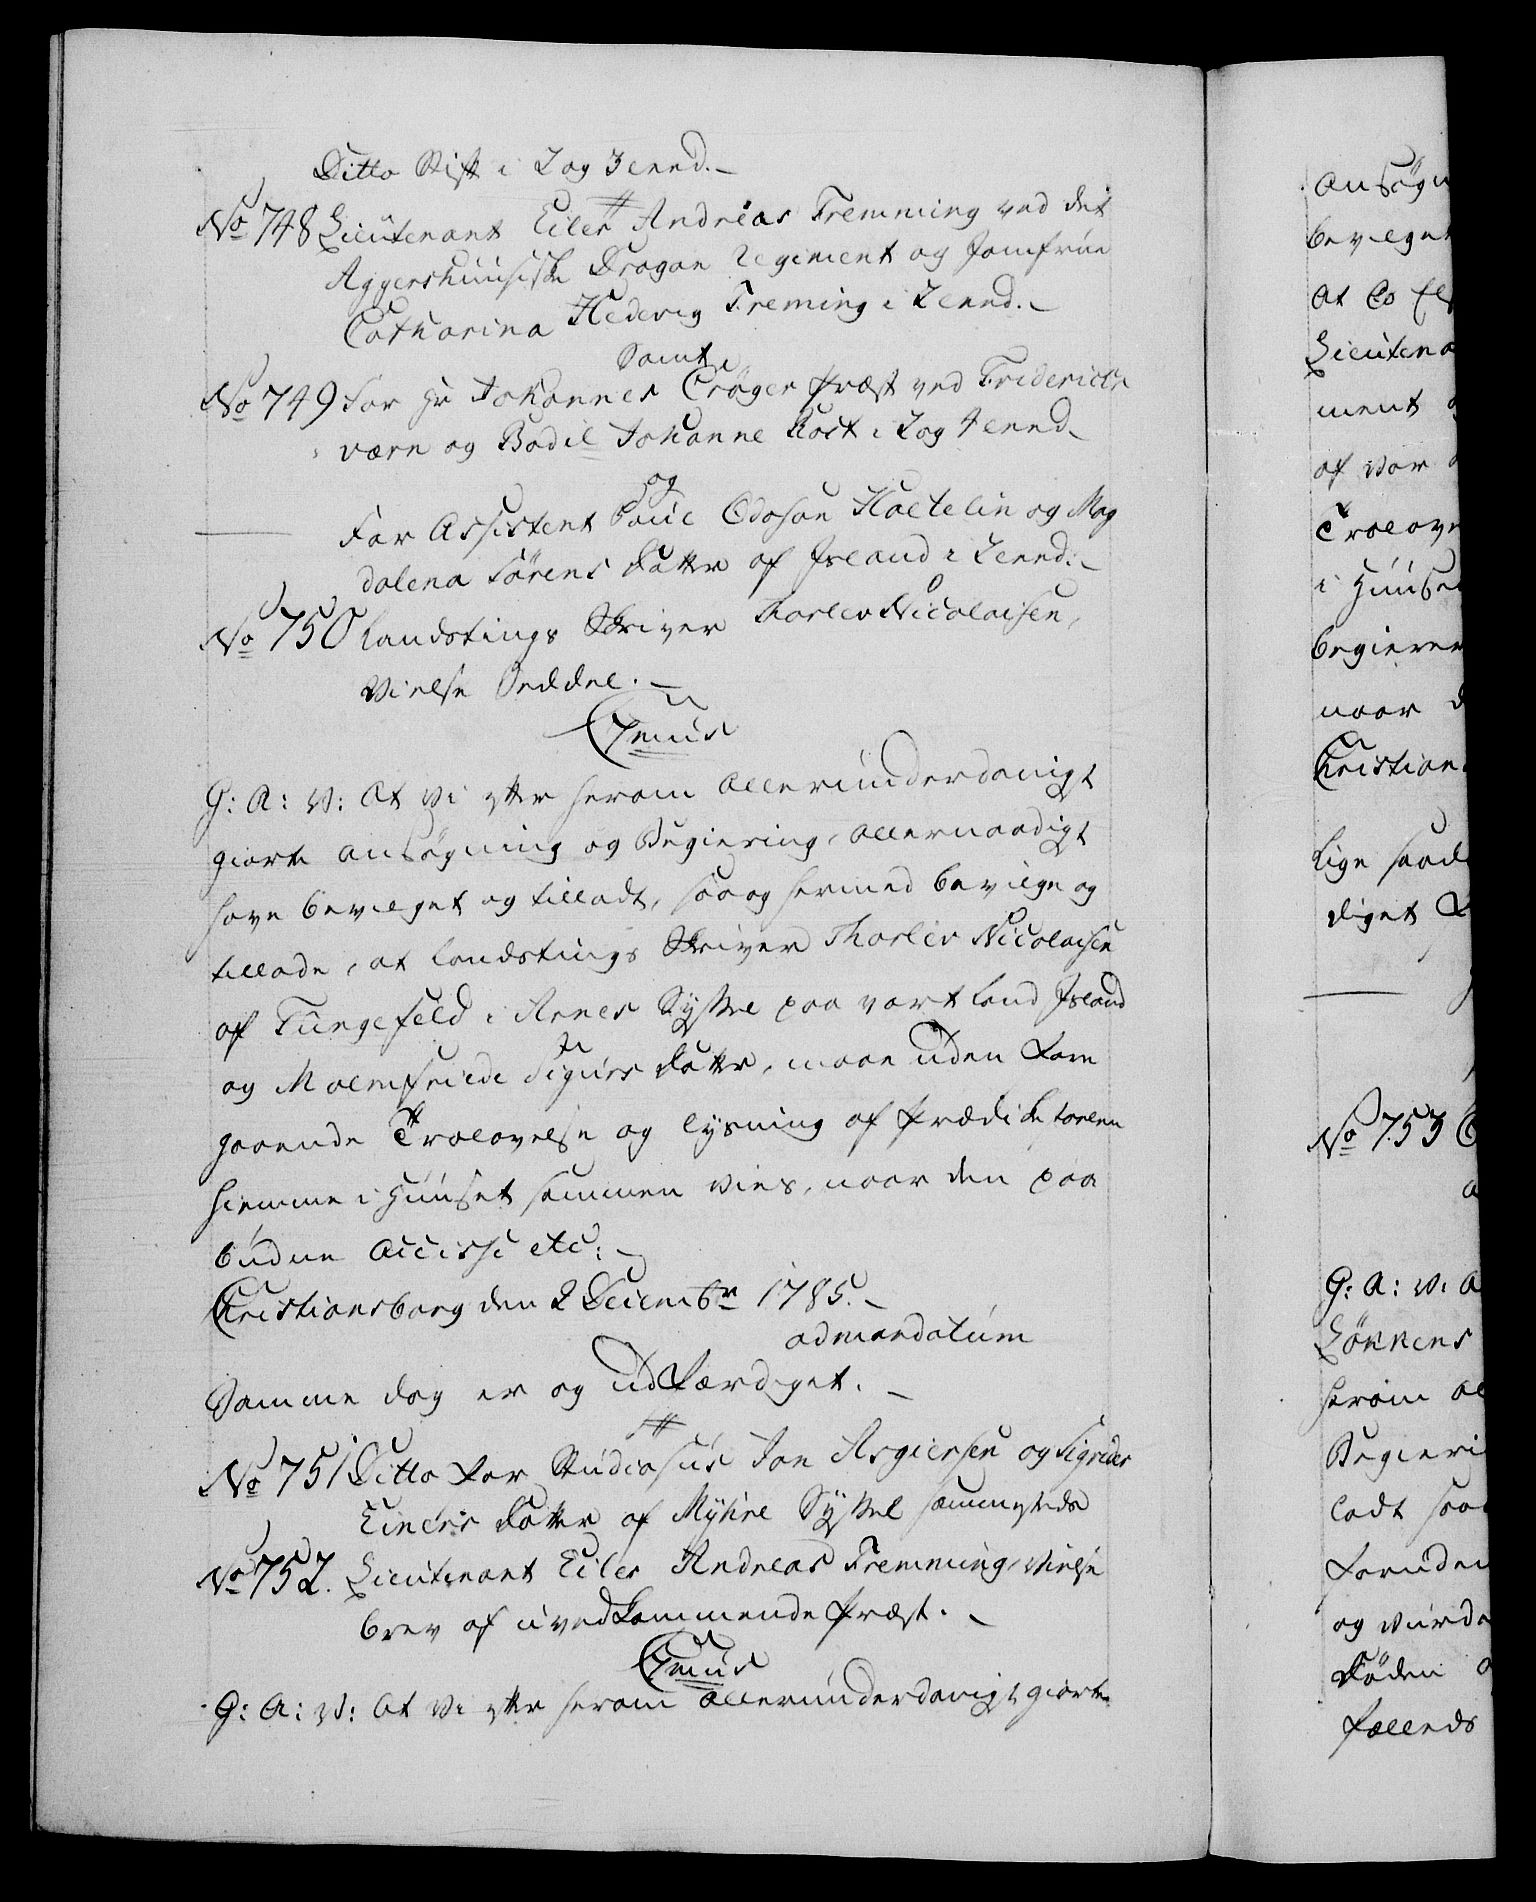 Ditto Stift i 2 og 3 leed.
No 748 Lieutenant Eiler Andreas Fremming ved det
Aggershuusiske Dragon Regiment og Jomfrue
Catharina Hedevig Freming i 2 leed.
Samt
No 749 For Hr Johannes Crøger Præst ved Friderichs
værn og Bodil Johanne Kost i 2 og 4 leed
og
For Assistent Poul Odoson Holtelin og Mag
dalena Sørens Datter af Island i 2 leed.
No 750 Landstings Skriver Thorlev Nicolaisen,
Vielse Seddel.
C7mus
G: A: V: At Vi efter herom allerunderdanigst
giorte ansøgning og Begiering, allernaadigst
have bevilget og tilladt, saa og hermed bevilge og
tillade, at Landstings Skriver Thorlev Nicolaisen
af Tungefeld i Arnes Syssel paa vort Land Island
og Malmfriede Sigurs Datter, maae uden Fore
gaaende Trolovelse og lysning af Prædikestolen
hiemme i Huuset sammen vies, naar den paa
budne Accisse etc:
Christiansborg den 2 Decembr 1785.
ad mandatum
Samme dag er og udfærdiget.
No 751 Ditto for Studiosus Jon Asgiersen og Sigrider
Einers Datter af Myhre Syssel sammesteds
No 752. Lieutenant Eiler Andreas Fremming, Vielse
brev af uvedkommende Præst.
C7mus
G: A: V: At Vi efter herom allerunderdanigst giorte
ansøgn
bevilget
at
Lieutena
ment
af vor
Trolove
i Huuse
begierer
naar
Christian
lige saad
diget
No 753
G: A: V: A
Løkkens
herom al
Begieri
ladt saa
foruden
og vurde
Døden
fælleds